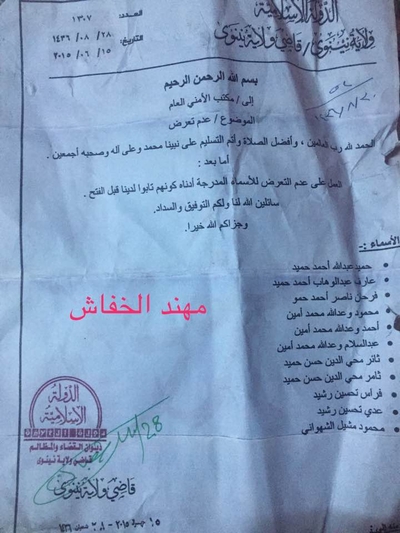 الدولة الإسلامية
ولاية نينوى / قاضي ولاية نينوى
العدد: ١٣٠٧
التاريخ: ٢٨ / ٠٨ / ١٤٣٦
١٥ / ٠٦ / ٢٠١٥
بسم الله الرحمن الرحيم
إلى / مكتب الأمني العام
الموضوع / عدم تعرض
الحمد لله رب العالمين ، وأفضل الصلاة وأتم التسليم على نبينا محمد وعلى آله وصحبه أجمعين .
أما بعد :
العمل على عدم التعرض للأسماء المدرجة أدناه كونهم تابوا لدينا قبل الفتح .
سائلين الله لنا ولكم التوفيق والسداد.
وجزاكم الله خيرا.
الأسماء :-
حميد عبدالله أحمد حميد
عارف عبدالوهاب أحمد حميد
فرحان ناصر أحمد حمو
محمود وعدالله محمد أمين
أحمد وعدالله محمد أمين
عبدالسلام وعدالله محمد أمين
ثائر محي الدين حسن حميد
ثامر محي الدين حسن حميد
فراس تحسين رشيد
عدي تحسين رشيد
محمود مشيل الشهواني
مهند الخفاش
الدولة
الإسلامية
ديوان القضاء والمظالم
ولاية نينوى
قاضي ولاية نينوى